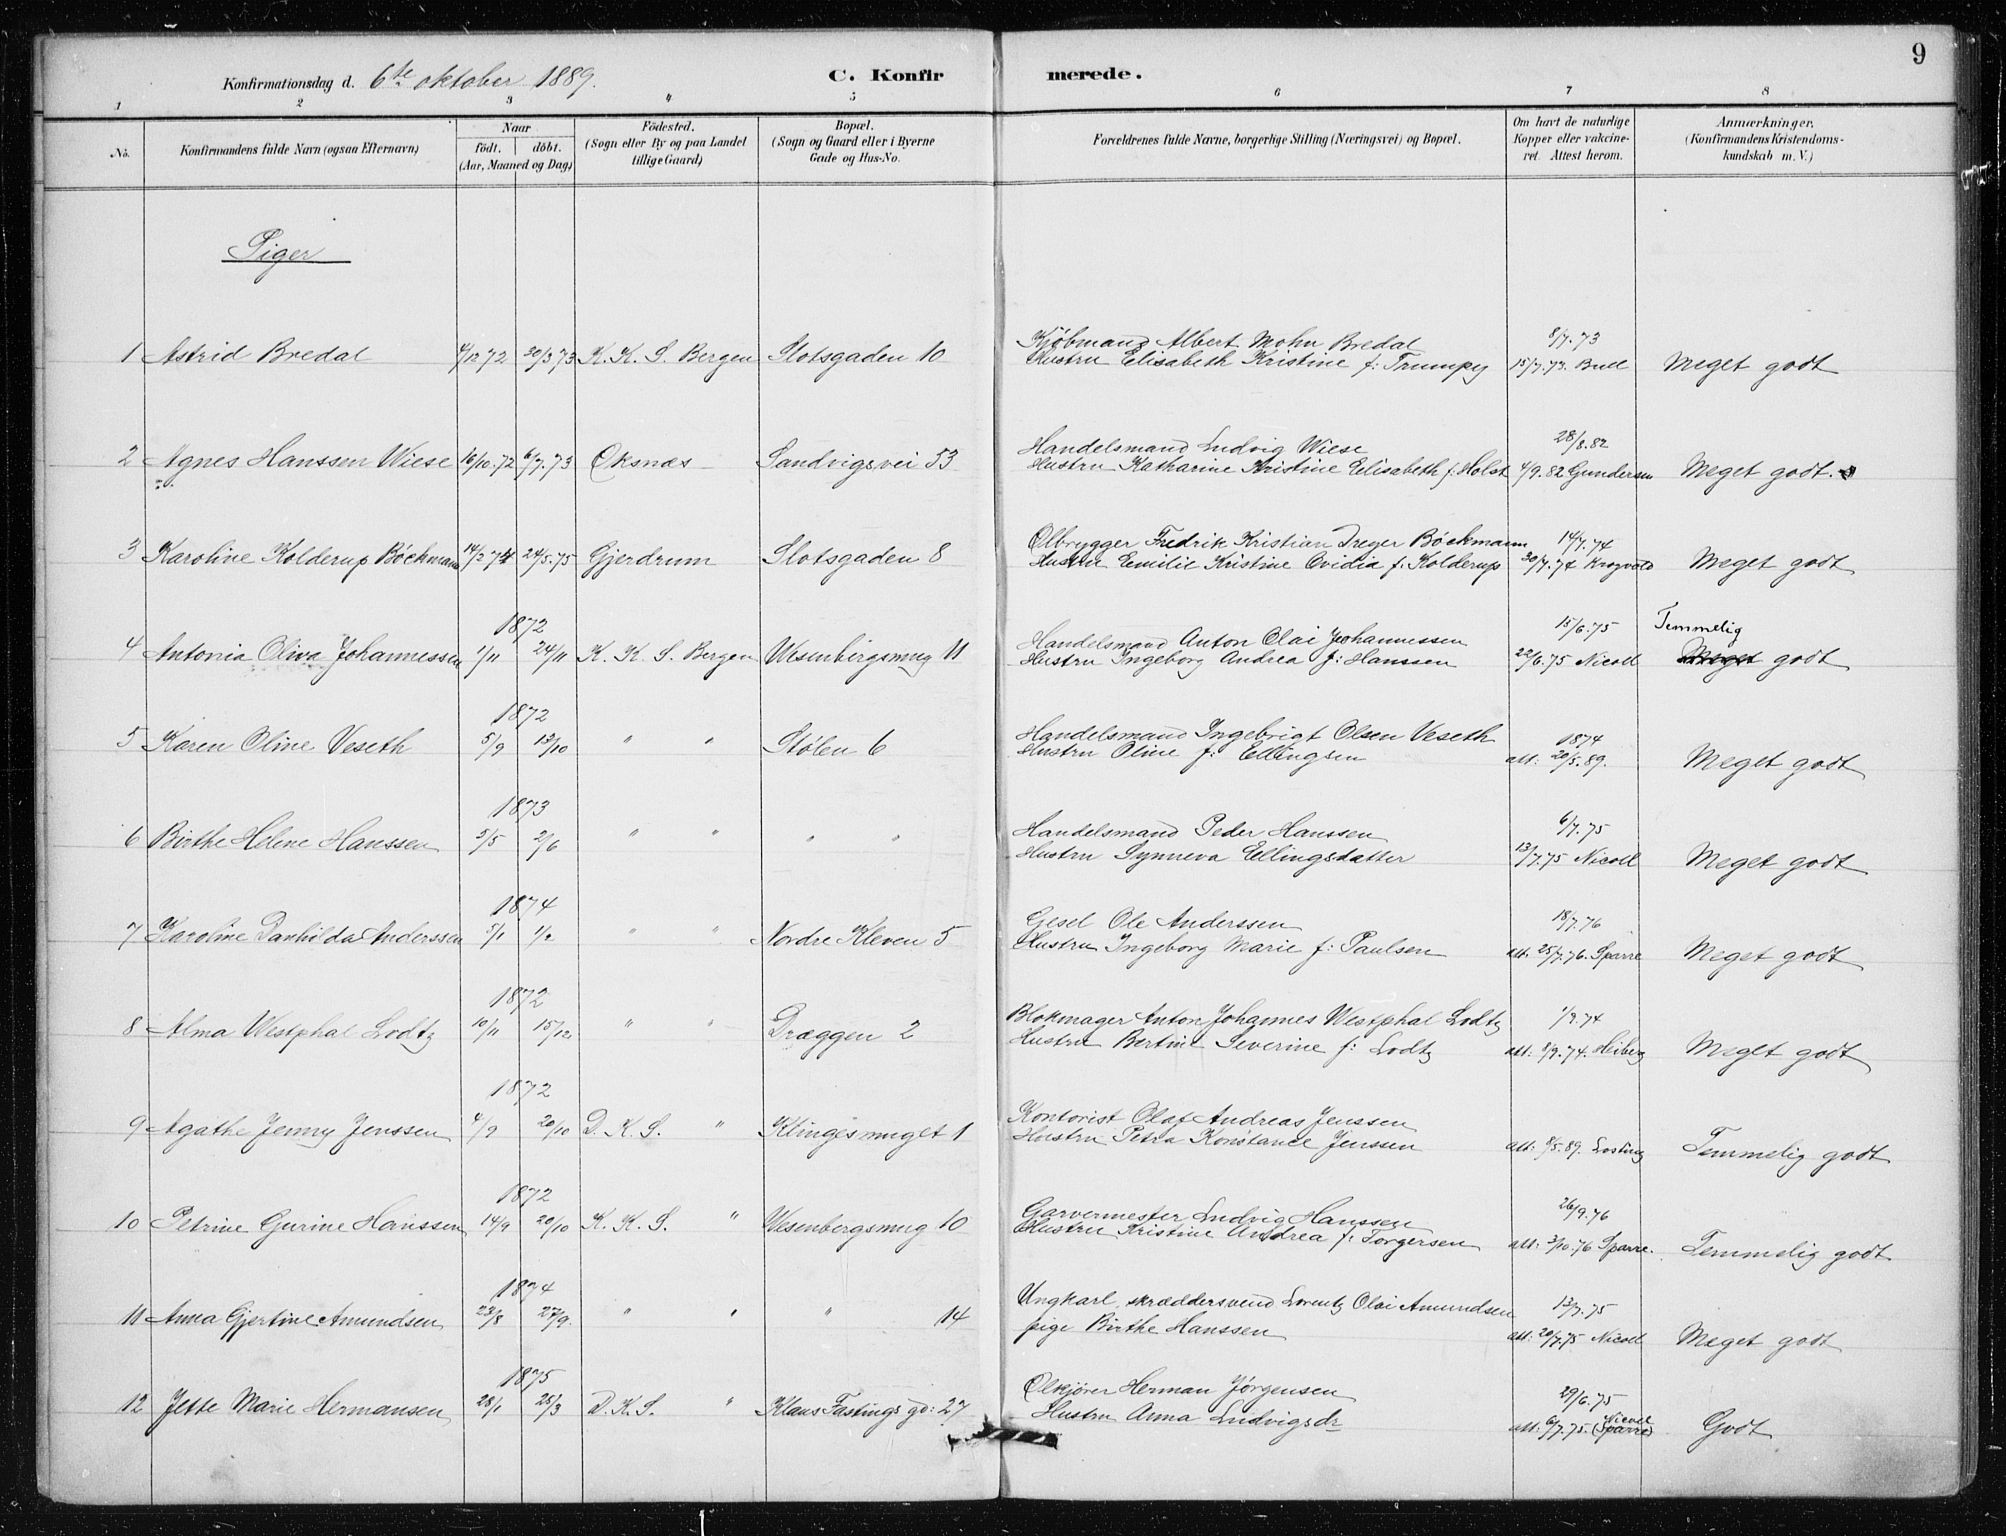 9
Konfirmationsdag d. 6te oktober 1889.
C. Konfirmerede.
1 2 3 4 5 6 7 8
No. Konfirmandens fulde Navn (ogsaa Efternavn) Naar födt. döbt. (Aar, Maaned og Dag) Födested. (Sogn eller By og paa Landet tillige Gaard) Bopæl. (Sogn og Gaard eller i Byerne Gade og Hus-No. Forældrenes fulde Navne, borgerlige Stilling (Næringsvei) og Bopæl. Om havt de naturlige Kopper eller vakcineret. Attest herom. Anmærkninger, (Konfirmandens Kristendomskundskab m. V.)
Piger
Kjöbmand Albert Mohn Bredal 8/7.73
1 Astrid Bredal 4/12 72 30/3 73 K. K. S. Bergen Slotsgaden 10 Hustru Elisabeth Kristine f: Trumpy 15/7.73. Bull Meget godt
Handelsmand Ludvig Wiese 28/8.82
2 Agnes Hanssen Wiese 16/10.72 6/7.73 Öksnæs Sandvigsvei 53 Hustru Katharine Kristine Elisabeth f. Holst 4/9.82 Gundersen Meget godt.
Ölbrygger Fredrik Kristian Dreyer Böckmann 14/7.74
3 Karoline Kolderup Böckmann 14/2 74 24/5.75 Gjerdrum Slotsgaden 8 Hustru Emilie Kristine Ovidia f. Kolderup 20/7.74 Krogvold Meget godt
1872 Handelsmand Anton Olai Johannessen 15/6.75 Temmelig
4 Antonia Oliva Johannessen 1/11 24/11 K. K. S. Bergen Wesenbergsmug 11 Hustru Ingeborg Andrea f: Hanssen 22/6.75 Nicoll Meget godt
1872 Handelsmand Ingebrigt Olsen Veseth 1874
5 Karen Oline Veseth 5/9 13/10 " " Stölen 6 Hustru Oline f: Ellingsen att: 20/5.89. Meget godt
1873 Handelsmand Peder Hanssen 6/7.75
6 Birthe Helene Hanssen 5/5 2/6 " " " " Hustru Synneva Ellingsdatter 13/7.75 Nicoll Meget godt
1874 Gesel Ole Anderssen 18/7.76
7 Karoline Danhilda Anderssen 5/1 1/2 " " Nordre Kleven 5 Hustru Ingeborg Marie f: Paulsen att. 25/7.76. Sparre Meget godt
1872 Blokmager Anton Johannes Westphal Lodtz 1/9.74
8 Alma Westphal Lodtz 10/11 15/12 " " Dræggen 2 Hustru Bertine Severine f: Lodtz att: 8/9.74. Heiberg Meget godt
1872 Kontorist Olaf Andreas Jenssen
9 Agathe Jenny Jenssen 4/9 20/10 D. K. S. " Klingesmuget 1 Hustru Petra Konstance Jenssen att: 8/5.89. Temmelig godt
1872 Garvermester Ludvig Hanssen 26/9.76
10 Petrine Gurine Hanssen 14/9 20/10 K. K. S. " Wesenbergsmug 10 Hustru Kristine Andrea f: Torgersen att: 3/10.76 Sparre. Temmelig godt
1874 Ungkarl, skræddersvend Lorentz Olai Amundsen 13/7.75
11 Anna Gjertine Amundsen 23/8 27/9. " " " 14 pige Birthe Hanssen att: 20/7.75 Nicoll Meget godt
1875 Ölkjörer Herman Jörgensen 29/6.75
12 Jette Marie Hermansen 28/1 25/3 D. K. S. " Klaus Fastings gd: 27 Hustru Anna Ludvigsdr att: 6/7.75. Nicoll (Sparre) Godt